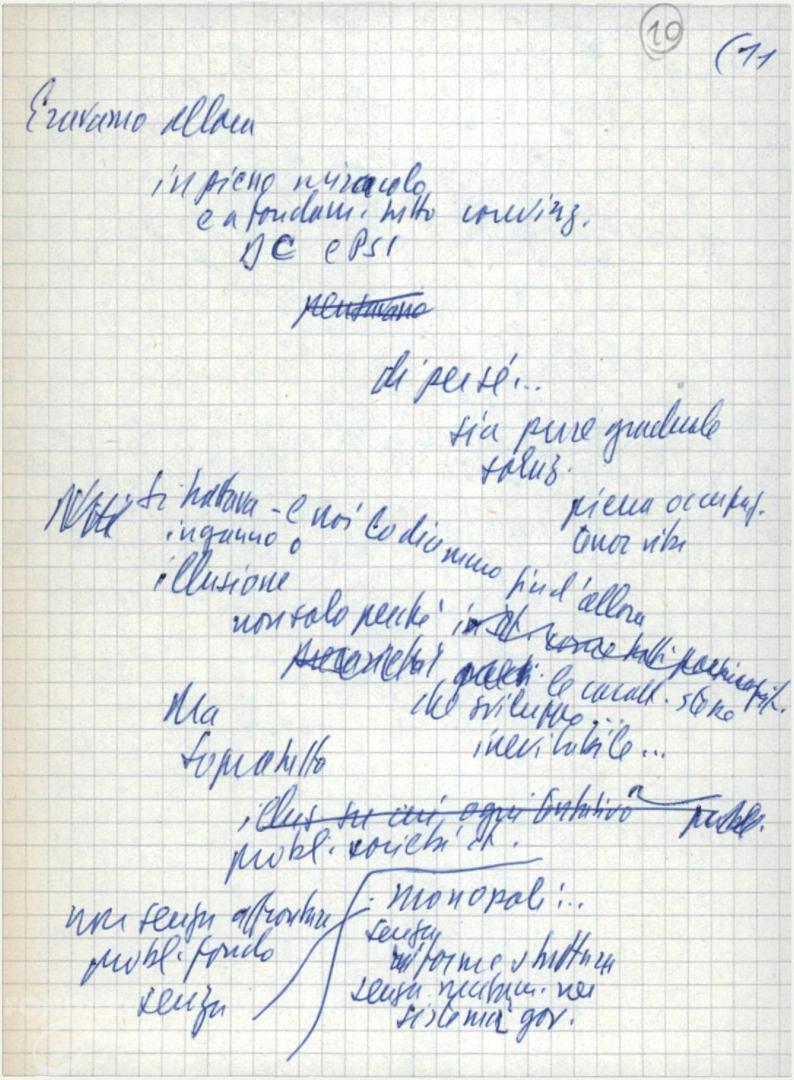 10
(11
Eravamo allora
in pieno miracolo
e a fondam. tutto convinz.
DC e PSI
pensavano
di per sé...
sia pure graduale
soluz.
piena occupaz.
tenor vita
Si trattava - e noi lo diciamo fin d'allora
inganno o
illusione
non solo perché in
le caratt. stesse
che sviluppo...
inevitabile...
Ma
sopratutto
illus su cui ogni tentativo
probl. società it.
monopoli...
non senza affrontare
probl. fondo
senza
senza
riforme struttura
senza mutam. nel
sistema gov.